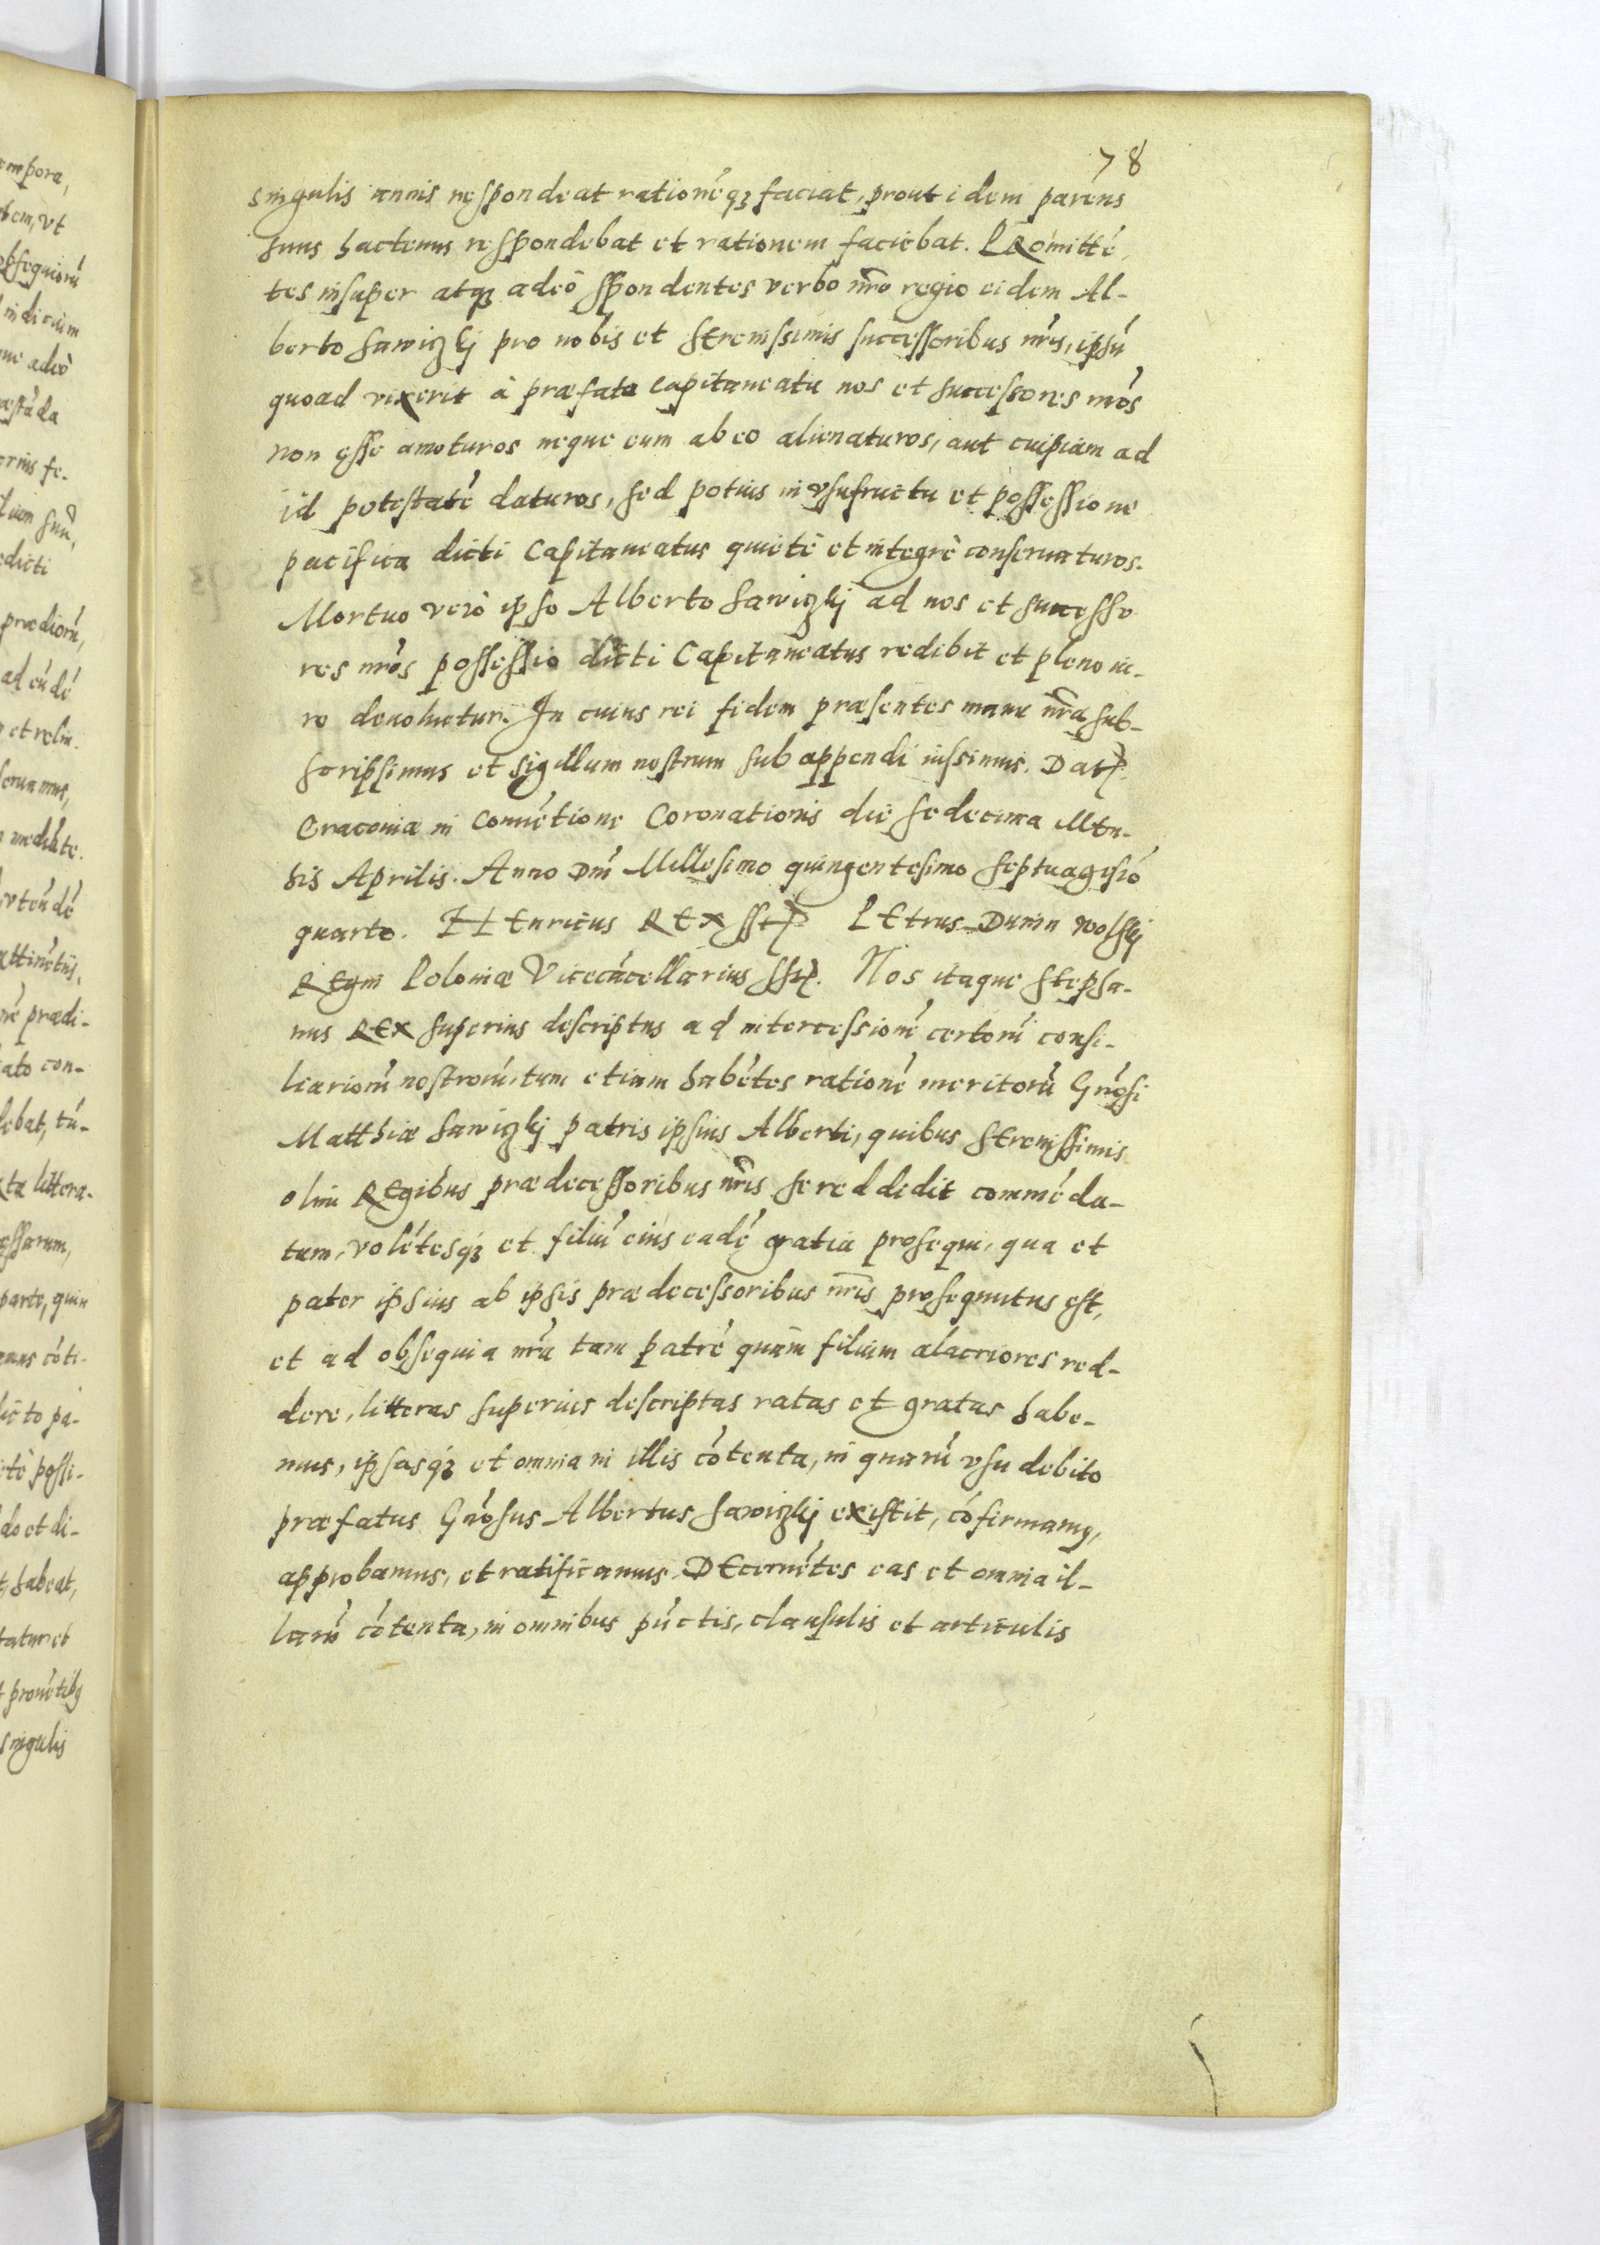 78
singulis annis respondeat rationéq3 faciat, prout idem parens
suus hactenus respondebat et rationem faciebat. PRomitté,
tes insuper atq3 adeò spondentes verbo nr̃o regio eidem Al-
berto Sawiczkj pro nobis et SErenissimis successoribus nr̃is, ipsú
quoad vixerit à præfata capitaneatu nos et successores nr̃os
non esse amoturos neque eum ab eo alienaturos, aut cuipiam ad
id potestaté daturos, sed potius in vsufructu et possessione
pacifica dicti Capitaneatus quietè et integrè conseruaturos.
Mortuo verò ipso Alberto Sawiczkj ad nos et successo
res nr̃os possessio dicti Capitaneatus redibit et pleno iu-
re deuoluetur. In cuius rei fidem præsentes manu nr̃a sub-
scripsimus et sigillum nostrum subappendi iussimus. Dat.
Cracouiæ in Conuétione Coronationis die sedecima Mén-
sis Aprilis. Anno Dni Millesimo quingentesimo septuagesió
quarto. HEnricus REX sst. PEtrus Dunin Wolskj
REgni Poloniæ Vicecácellarius sst. Nos itaque Stepha-
nus REX superius descriptus ad intercessioné certorú consi-
liariorú nostrorú, tum etiam habétes rationé meritorú Gnr̃osi
Matthiæ Sawiczkj patris ipsius Alberti, quibus SErenissimis
olim REgibus prædecessoribus nr̃is se reddidit comméda-
tum, volétesq3 et filiú eius eadé gratia prosequi, qua et
pater ipsius ab ipsis prædecessoribus nr̃is prosequutus est,
et ad obsequia nr̃a tam patré quàm filium alacriores red-
dere, litteras superius descriptas ratas et gratas habe-
mus, ipsasq3 et omnia in illis cótenta, in quarú vsu debito
præfatus Gnr̃osus Albertus Sawiczkj existit, cófirmamꝰ,
approbamus, et ratificamus. DEcernétes eas et omnia il-
larú cótenta, in omnibus púctis, clausulis et articulis